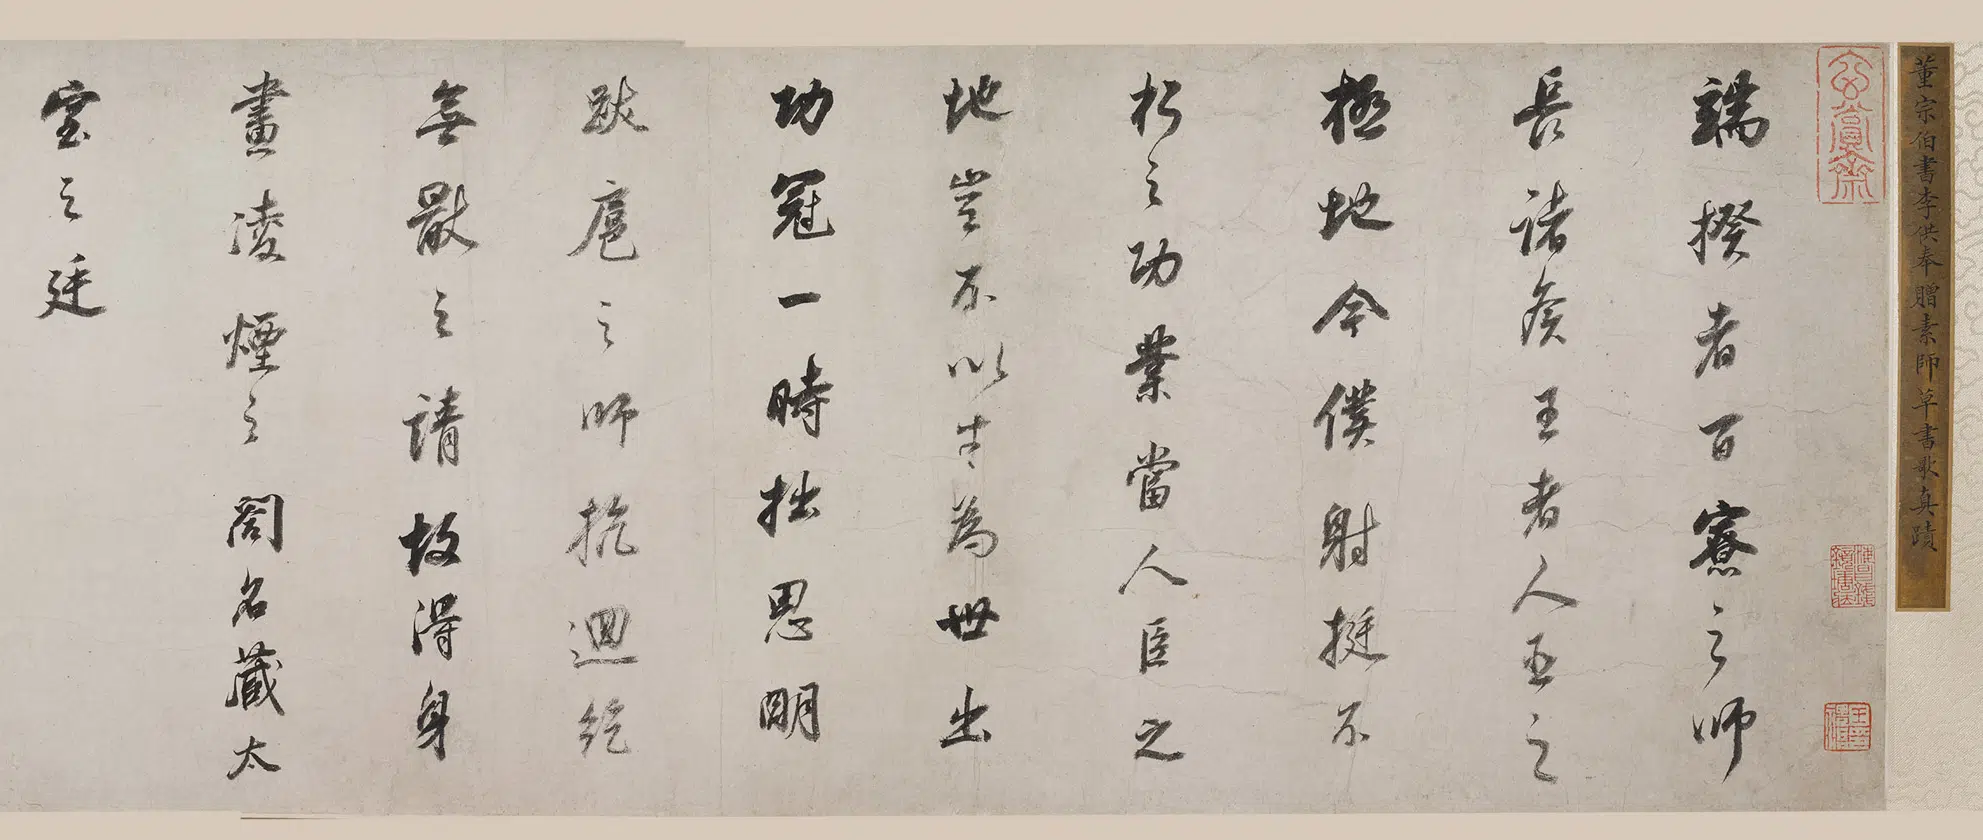 董宗伯書李供奉贈素師草書歌真蹟
玄賞齋
端揆者百寮之師
長諸侯王者人臣之
極地今僕射挺不
朽之功業當人臣之
地豈不以才為世出
功冠一時拙思明
跋扈之師抗迴紇
無猒之請故得身
畫淩煙之閣名藏太
室之廷